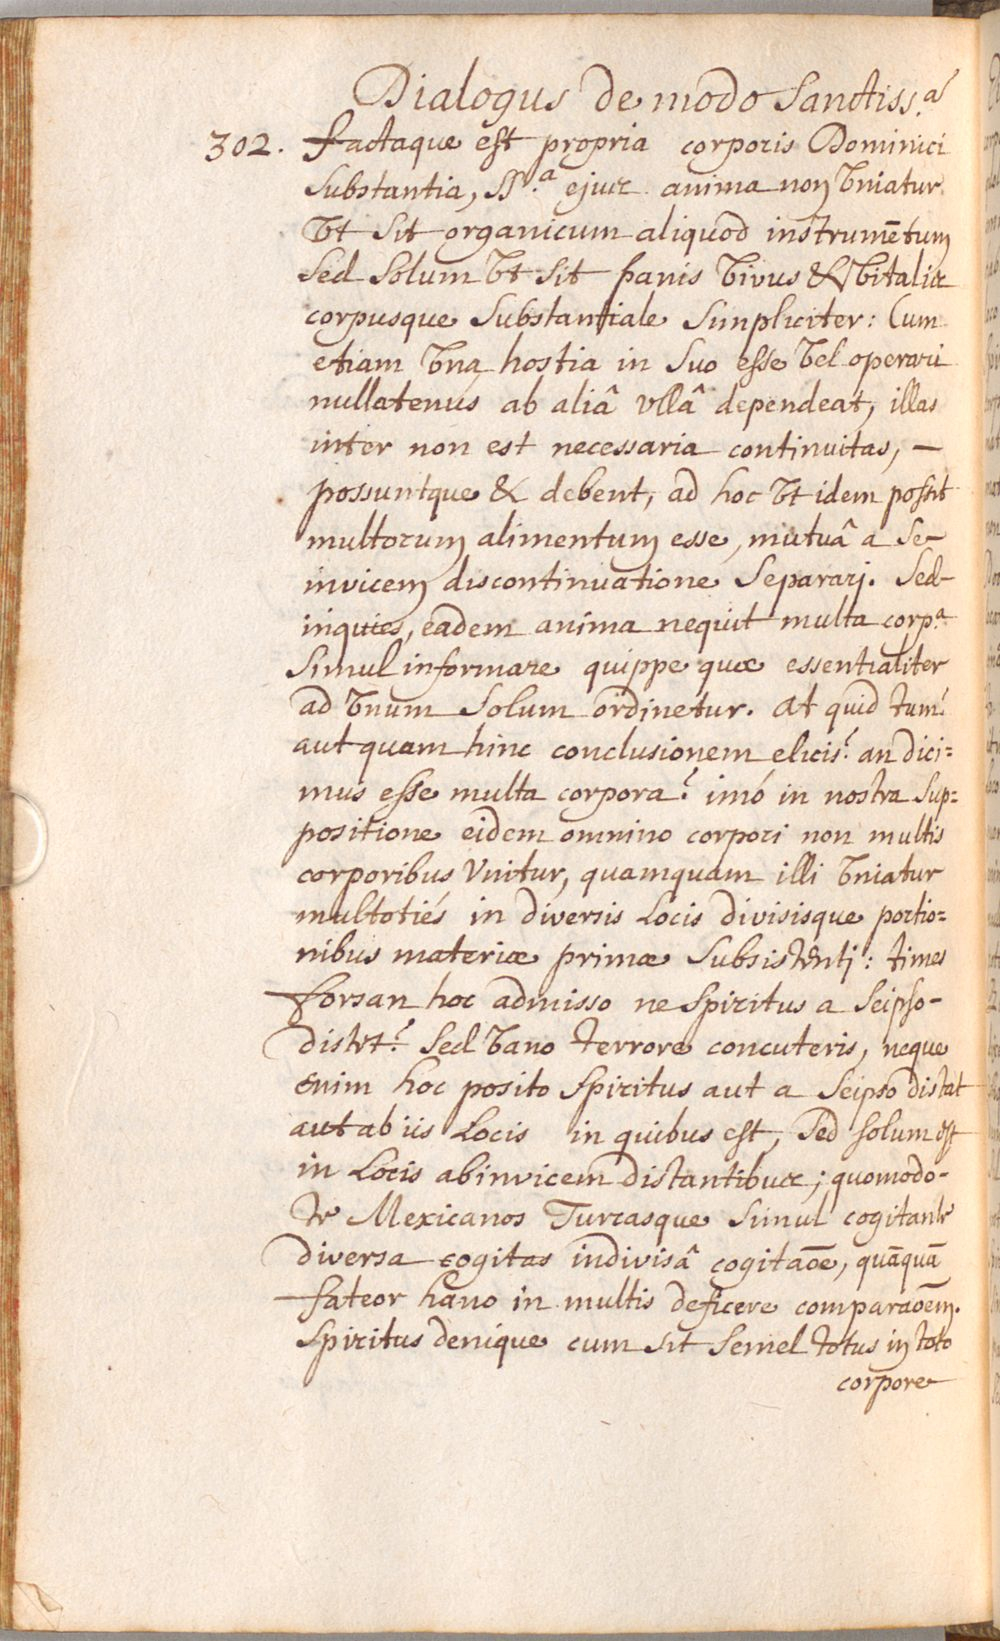 Dialogus de modo Sanctiss.ᵃ
302. factaque est propria corporis Dominici
substantia, SS.ᵃ ejus anima non Vniatur
Vt sit organicum aliquod instrumētum
sed solum Vt sit panis Vivus & Vitalis
corpusque substantiale simpliciter: Cum
etiam Vna hostia in suo esse Vel operari
nullatenus ab aliâ vllâ dependeat, illas
inter non est necessaria continuitas, —
possuntque & debent, ad hoc Vt idem possit
multorum alimentum esse, mutuâ a se-
invicem discontinuatione separarj. Sed-
inquies, eadem anima nequit multa corp.ᵃ
simul informare quippe quæ essentialiter
ad Vnum solum ordinetur. at quid tum?
aut quam hinc conclusionem elicis? an dici=
mus esse multa corpora? imó in nostra sup=
positione eidem omnino corpori non multis
corporibus Vnitur, quamquam illi Vniatur
multotiés in diversis Locis divisisque portio=
nibus materiæ primæ subsistentj: times
forsan hoc admisso ne spiritus a seipso-
distet? Sed Vano terrore concuteris, neque
enim hoc posito spiritus aut a seipso distat
aut ab iis Locis in quibus est, sed solum est
in Locis abinvicem distantibus; quomodo-
te Mexicanos Turcasque simul cogitante
diversa cogitas indivisâ cogitaōe, quāquā
fateor hanc in multis deficere comparaōem.
Spiritus denique cum sit semel totus in toto
corpore